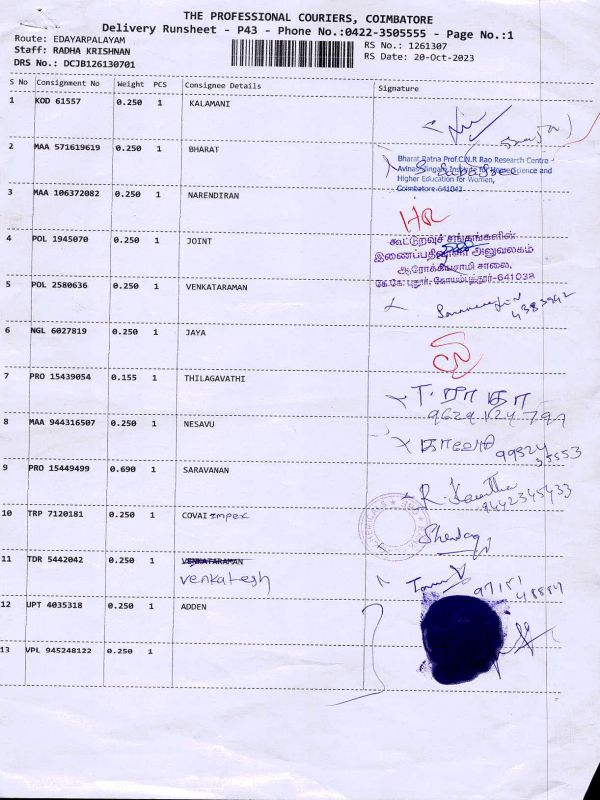 THE PROFESSIONAL COURIERS, COIMBATORE
Delivery Runsheet - P43 - Phone No.:0422-3505555 - Page No.:1
Route: EDAYARPALAYAM
RS No.: 1261307
Staff: RADHA KRISHNAN
RS Date: 20-Oct-2023
DRS No.: DCJB126130701
S No Consignment No Weight PCS Consignee Details Signature
1 KOD 61557 0.250 1 KALAMANI
2 MAA 571619619 0.250 1 BHARAT
Bharat Ratna Prof.C.N.R Rao Research Centre
Avinashilingam Institute for Home Science and
Higher Education for Women,
Coimbatore-641043
3 MAA 106372082 0.250 1 NARENDIRAN
4 POL 1945070 0.250 1 JOINT
கூட்டுறவுச் சங்கங்களின்
இணைப்பதிவாளர் அலுவலகம்
ஆரோக்கியசாமி சாலை,
கோயமுத்தூர்-641038
5 POL 2580636 0.250 1 VENKATARAMAN
6 NGL 6027819 0.250 1 JAYA
7 PRO 15439054 0.155 1 THILAGAVATHI
T. ராதா
8 MAA 944316507 0.250 1 NESAVU
9 PRO 15449499 0.690 1 SARAVANAN
9442345433
10 TRP 7120181 0.250 1 COVAI Impex
11 TDR 5442042 0.250 1 VENKATARAMAN
Venkatesh
12 UPT 4035318 0.250 1 ADDEN
13 VPL 945248122 0.250 1